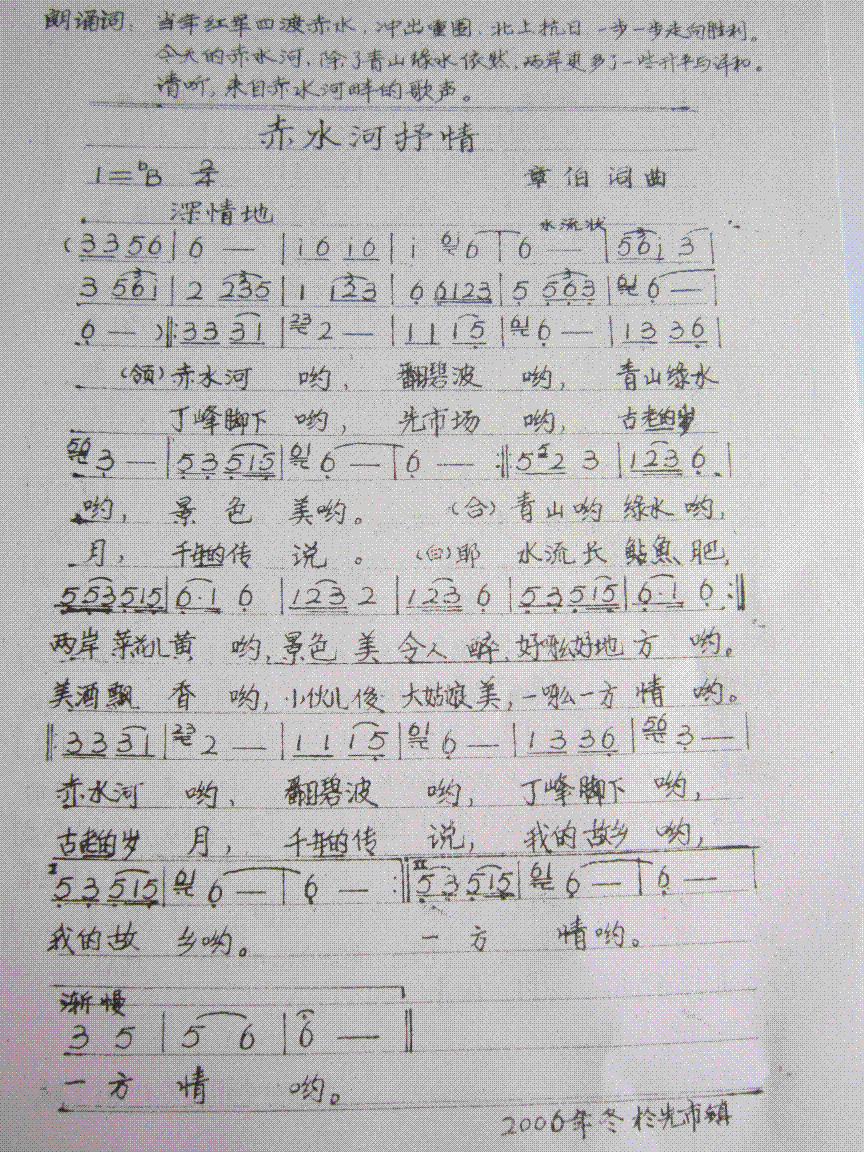 朗诵词：当年红军四渡赤水，冲出重围，北上抗日 一步一步走向胜利。
今天的赤水河，除了青山绿水依然，两岸更多了一些升平与详和。
请听，来自赤水河畔的歌声。
赤水河抒情
1=bB 2/4 章伯 词曲
深情地
水流状
(3 3 5 6 | 6 — | i 6 i 6 | i 6i 6 | 6 — | 5 6 i 3 |
3 5 6 i | 2 2 3 5 | 1 1 2 3 | 6 6 1 2 3 | 5 5 6 3 | 61 6 — |
6 — )‖: 3 3 3 1 | 23 2 — | 1 1 1 5 | 61 6 — | 1 3 3 6 |
(领)赤水河 哟， 翻碧波 哟， 青山绿水
丁峰脚下 哟， 先市场 哟， 古老的岁
56 3 — | 5 3 5 1 5 | 61 6 — | 6 — :‖ 5 5 2 3 | 1 2 3 6 |
哟， 景 色 美哟。 (合) 青山哟 绿水哟，
月， 千年的传 说 。 (白)耶 水流长 鲇鱼肥，
5 5 3 5 1 5 | 6·1 6 | 1 2 3 2 | 1 2 3 6 | 5 3 5 1 5 | 6·1 6 :‖
两岸 菜花儿黄 哟，景色 美 令人 醉，好呀么好地 方 哟。
美酒飘 香 哟，小伙儿俊 大姑娘美，一呀么一方 情 哟。
‖: 3 3 3 1 | 23 2 — | 1 1 1 5 | 61 6 — | 1 3 3 6 | 56 3 — |
赤水河 哟， 翻碧波 哟， 丁峰脚下 哟，
古老的岁 月， 千年的传 说， 我的故乡 哟，
I 5 3 5 1 5 | 61 6 — | 6 — :‖ II 5 3 5 1 5 | 61 6 — | 6 — |
我的故 乡哟。 一 方 情哟。
渐慢
3 5 | 5 6 | 6 — ‖
一 方 情 哟。
2006年冬 於先市镇